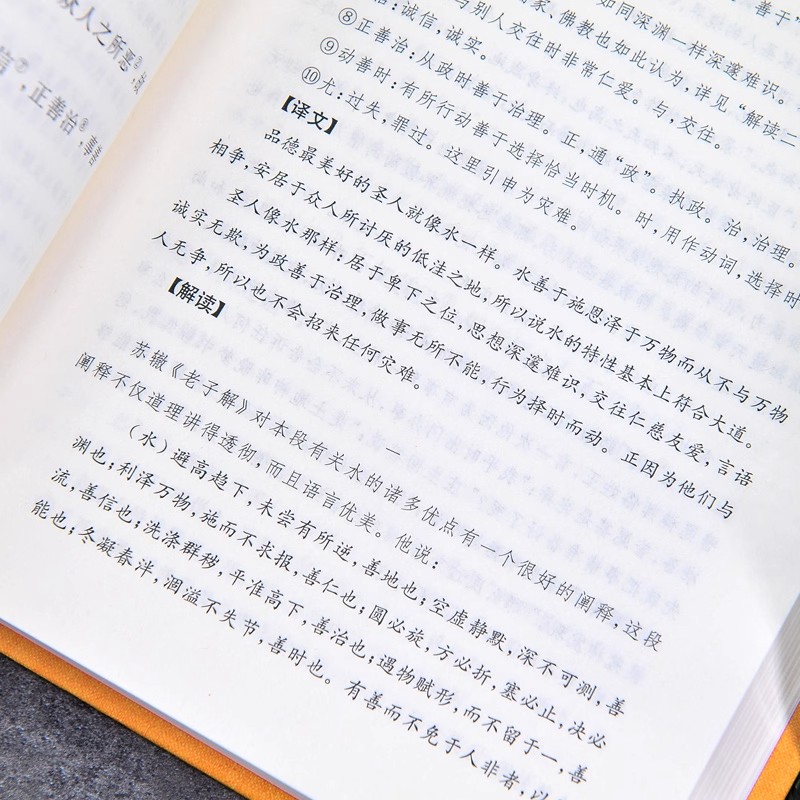 众人之所恶③，故
信⑦，正善治⑧，事善
善于
如同深渊一样深邃难识。
家、佛教也如此认为，详见“解读二
与别人交往时非常仁爱。与，交往。
：诚信，诚实。
⑧正善治：从政时善于治理。正，通“政”。执政。治，治理。
⑨动善时：有所行动善于选择恰当时机。时，用作动词，选择时
⑩尤：过失，罪过。这里引申为灾难。
【译文】
品德最美好的圣人就像水一样。水善于施恩泽于万物而从不与万物
相争，安居于众人所讨厌的低洼之地，所以说水的特性基本上符合大道。
圣人像水那样：居于卑下之位，思想深邃难识，交往仁慈友爱，言语
诚实无欺，为政善于治理，做事无所不能，行为择时而动。正因为他们与
人无争，所以也不会招来任何灾难。
【解读】
一
苏辙《老子解》对本段有关水的诸多优点有一个很好的阐释，这段
阐释不仅道理讲得透彻，而且语言优美。他说：
（水）避高趋下，未尝有所逆，善地也；空虚静默，深不可测，善
渊也；利泽万物，施而不求报，善仁也；圆必旋，方必折，塞必止，决必
流，善信也；洗涤群秽，平准高下，善治也；遇物赋形，而不留于一，善
能也；冬凝春泮，涸溢不失节，善时也。有善而不免于人非者，以